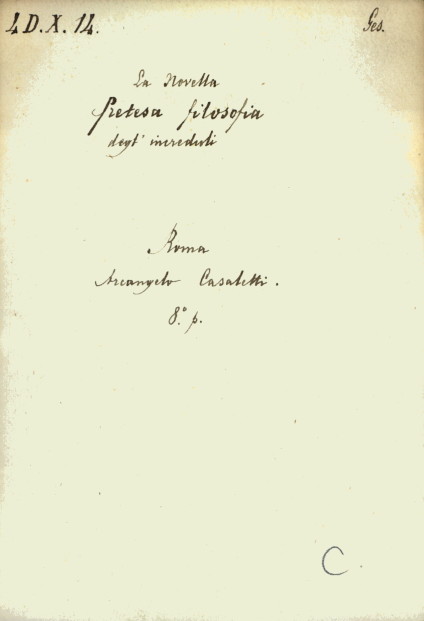 4 D. X. 14.
Ges.
La Novella
Pretesa filosofia
degl' increduli
Roma
Arcangelo Casaletti.
8.° p.
C.